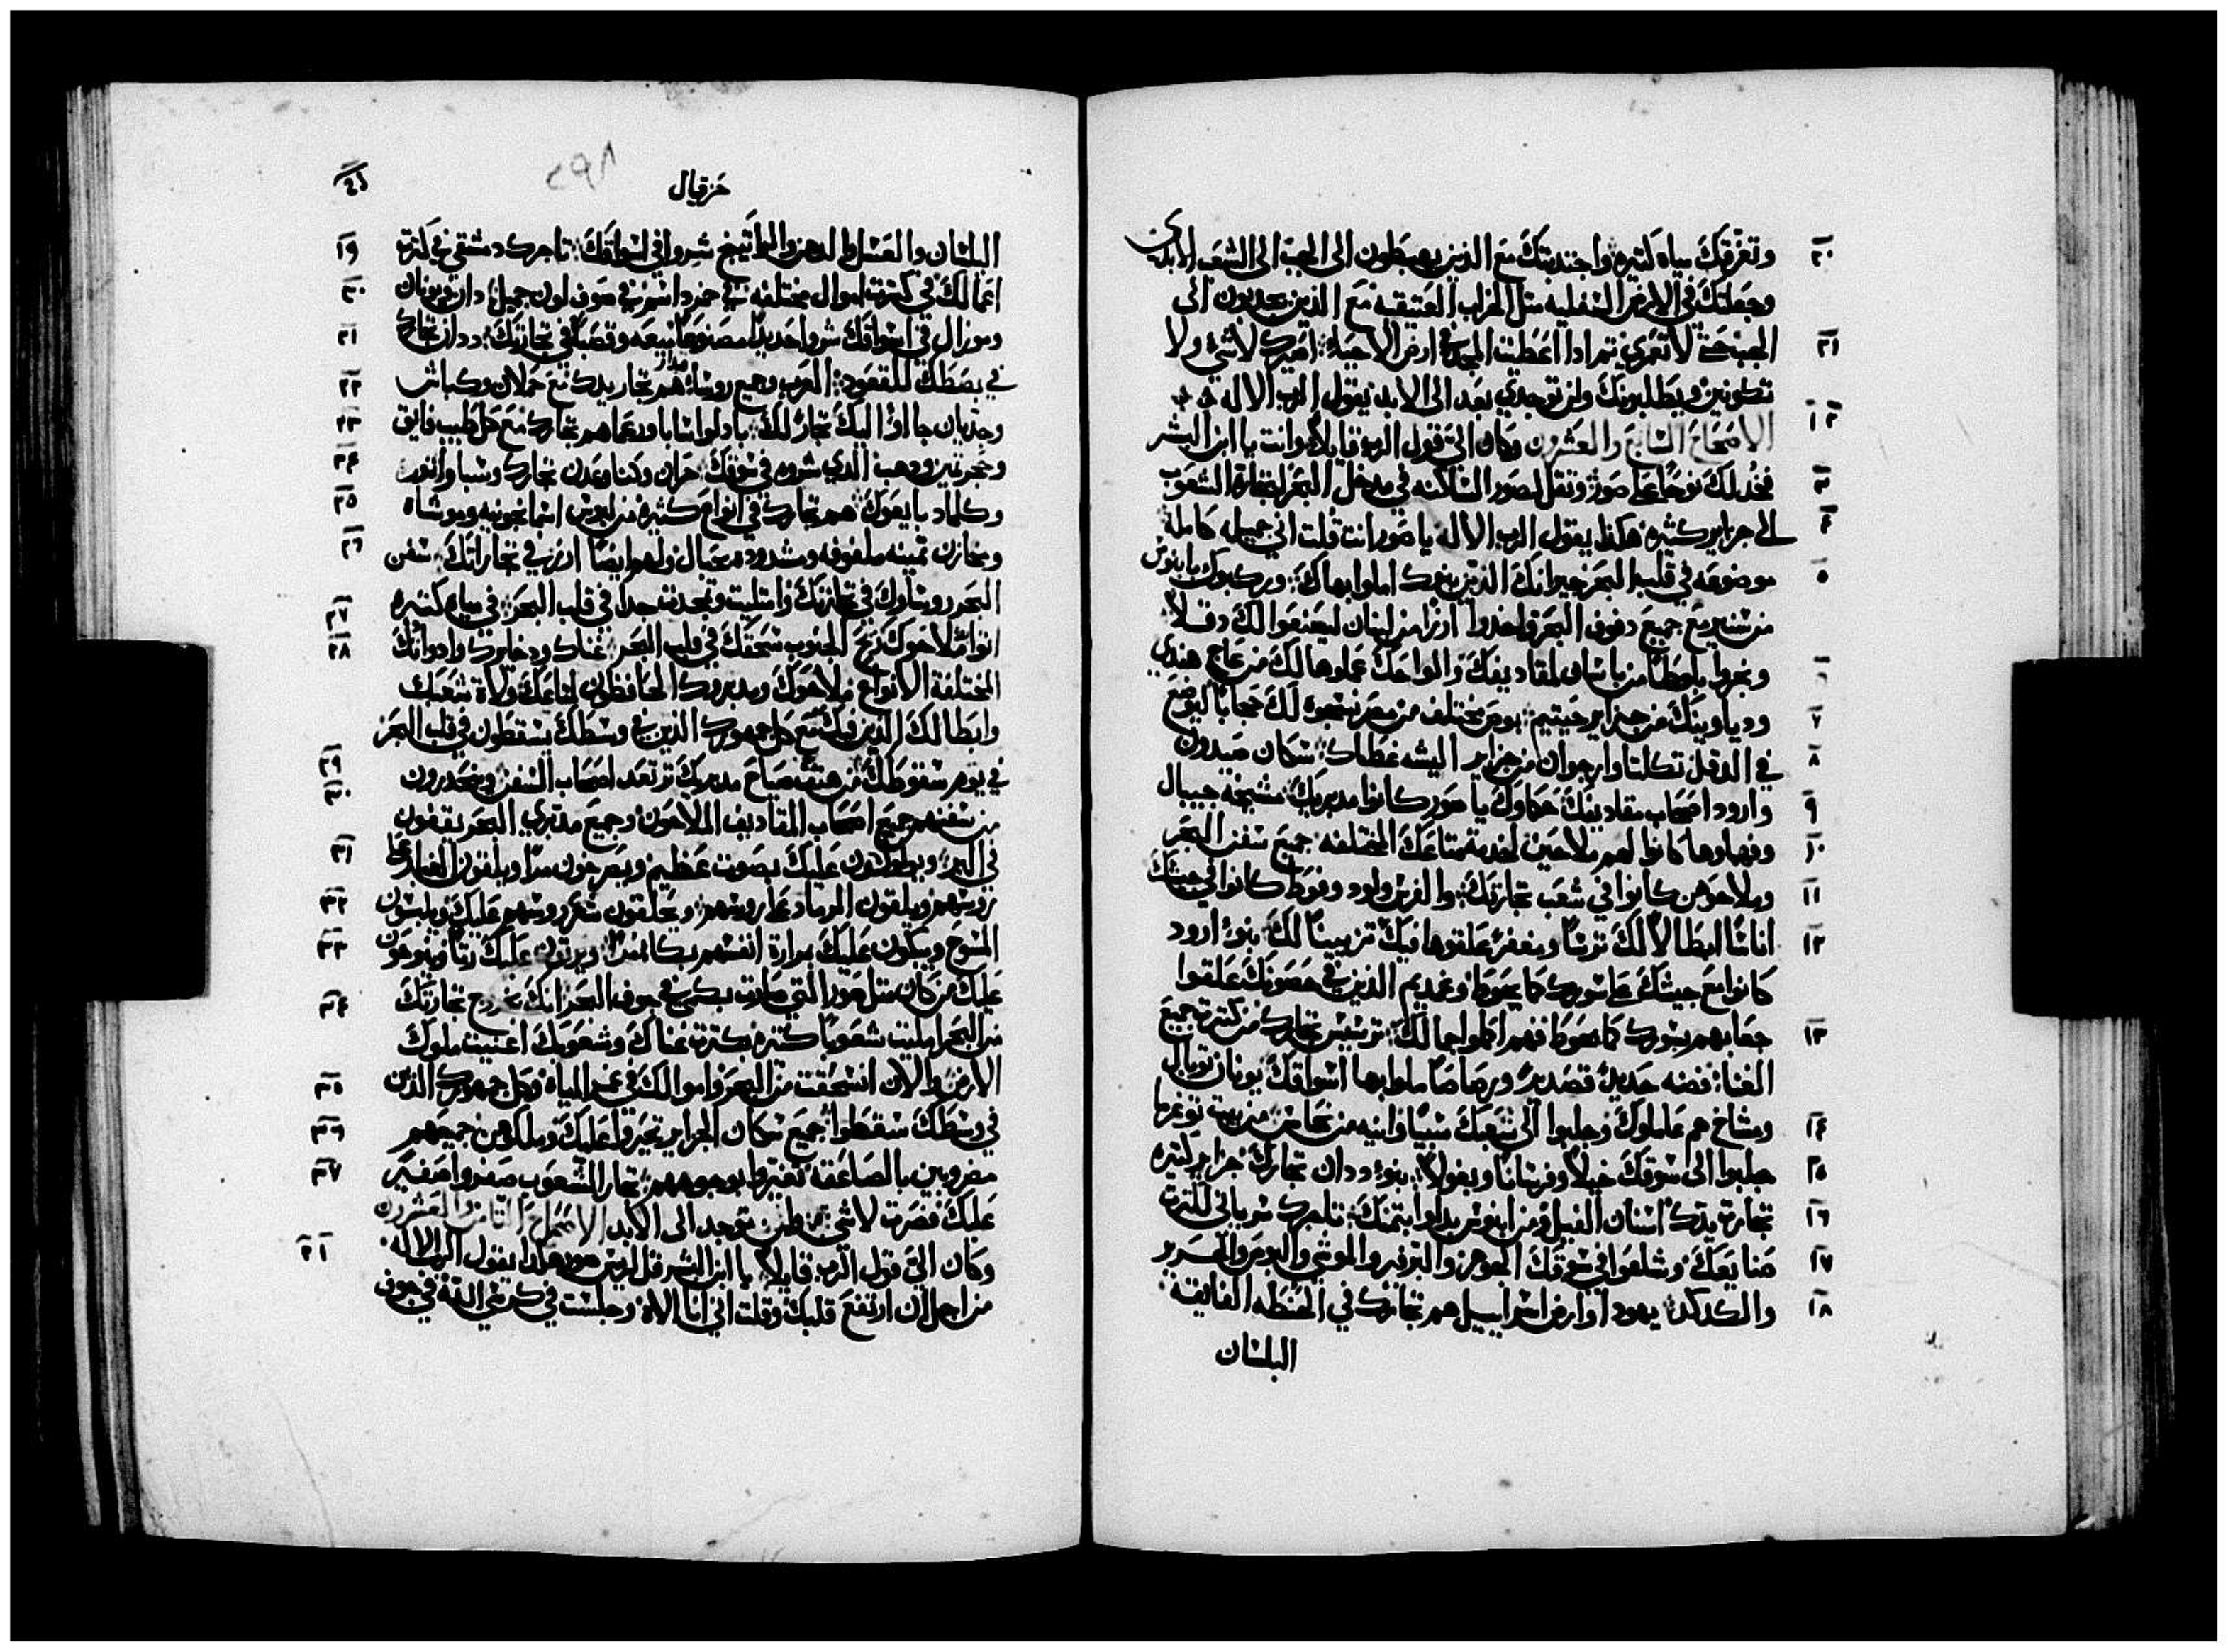 ٢٠ وتغرقك مياه كتيره واحندبتك مع الذين يهبطون الى الجب الى الشعب الابدى
وجعلتك في الارض السفليه مثل الخراب العتيقه مع الذين يحدبون الى
٢١ الجب حتى لا تعمري تم اذا اعطيت المجد في ارض الاحياء اصيرك لاشي ولا
تكونين ويطلبونك ولن توجدي بعد الى الابد يقول الرب الاله
١ ٢ الاصحاح السابع والعشرون وكان الي قول الرب قايلا وانت يا ابن البشر
٣ فخد لك نوحا على صور وتقل لصور الساكنه في مدخل البحر لتجارة الشعوب
٤ الى جزاير كثيره هكذا يقول الرب الاله يا صور انت قلت اني جميله كامله
٥ موضوعه في قلب البحر جيرانك الذين بنوك املوا بهاك وركبوك بابنوس
من سنير مع جميع دفوف البحر واخدوا ارزا من لبنان ليصنعوا لك دقلا
٦ ونجروا بلوطا من باسان لمقاديفك والواحك عملوها لك من عاج هندي
٧ ودياوبينك من جزاير حيتيم بوص مختلف من مصر لك حجابا ليوضع
٨ في الدقل تكلتا وارجوان من جزاير اليشه غطاك سكان صيدون
٩ وارود اصحاب مقاديفك حكاوك يا صور كانوا مديريك مشيخة جيبال
١٠ وفهاوها كانوا لهم ملاحين لخدمة متاعك المختلفه جميع سفن البحر
١١ وملاحوهن كانوا في شعب تجارتك والفرس ولود وفوط كانوا في جيشك
١٢ اناسا ابطالا لك ترسا ومغفرة علقوها فيك تزيينا لك بنو ارود
كانوا مع جيشك على سورك كما يحوط وغمديم الذين في حصونك علقوا
١٣ جعابهم بسورك كما يحوط فهم اكملوا جمالك ترسيس تجارك من كترة جميع
الغنا فضه حديد قصدير ورصاصا ملوا بها اسواقك يونان توبال
١٤ ومشاخ هم عاملوك وجلبوا الى شعبك سبيا وانيه من نحاس من بيت توغرما
١٥ جلبوا الى سوقك خيلا وفرسانا وبغولا بنو ددان تجارك جزاير كتيره
١٦ تجارة يدك اسنان الفيل ومن ابنوس بدلوا بتمنك تاجرك سرياني لكترة
١٧ صنايعك وشلعوا في سوقك الجوهر والبرفير والموشي والبوص والحرير
١٨ والكدكد يهودا وارض اسراييل هم تجارك في الحنطه الفايقه
البلسان
حزقيال
٢٩٨
١٩ البلسان والعسل والدهن والراتينج شروا في اسواقك تاجرك دمشقي في كترة
٢٠ اعمالك في كترت اموال مختلفه في خمر دسم في صوف لون جميل دان ويونان
٢١ وموزال في اسواقك شروا حديدا مصنوعا ميعه وقصبا في تجارتك ددان تجارك
٢٢ في بصطك للقعود العرب وجميع روساء قيدار هم تجار يدك مع حملان وكباش
٢٣ وجديان جااوا اليك تجار لك باولوا سابا ورعما هم تجارك مع كل طيب فايق
٢٤ وحجر تمين ودهب الذي شروه في سوقك حران وكنا وعدن تجارك وسبا واثور
٢٥ وكلماد بايعوك هم تجارك في انواع كتيره من لبوس اسمانجونيه وموشاه
٢٦ ومخازن تمينه ملفوفه ومشدوده بحبال ولهم ايضا ارز في تجاراتك سفن
البحر روساوك في تجارتك وامتليت وتمجدت جدا في قلب البحر في مياه كتيره
٢٧ اتوا ملاحوك ريح الجنوب سحقك في قلب البحر
٢٨ غناك ودخايرك وادواتك
المختلفة الانواع ملاحوك ومدبروك الحافظون لمتاعك ولاة شعبك
وابطالك الذين فيك مع كل جمهورك الذين في وسطك يسقطون في قلب البحر
٢٩ في يوم سقوطك من هتفة صياح مدبريك ترتعد اصحاب السفن وينحدرون
٣٠ من سفنهم جميع اصحاب المقاديف الملاحون وجميع مدبري البحر يقفون
٣١ في البر ويولولون عليك بصوت عظيم ويصرخون مرا ويلقون الغبار على
٣٢ روسهم ويلقون الرماد على روسهم ويحلقون شعر روسهم عليك ويلبسون
٣٣ المسوح ويبكون عليك بمرارة انفسهم بكا مرا ويرتون عليك رتا وينوحون
٣٤ عليك من كان مثل صور التي صارت بكمي في جوف البحر انك بخروج تجارتك
من البحر امليت شعوبا كتيره بكترة غناك وشعوبك اغنيت ملوك
٣٥ الارض والان انسحقت من البحر واموالك في عمق المياه وكل جمهورك الذين
٣٦ في وسطك سقطوا جميع سكان الجزاير تحيروا عليك وملوكهن جميعهم
٣٧ مضروبين بالصاعقه تغيروا بوجوههم تجار الشعوب صفروا صفير
عليك فصرت لاشي ولن توجد الى الابد الاصحاح الثامن والعشرون
١ ٢ وكان الي قول الرب قايلا يا ابن البشر قل لريس صور هكذا يقول الرب الاله
من اجل ان ارتفع قلبك وقلت اني انا الاه وجلست في كرسي الله في جوف